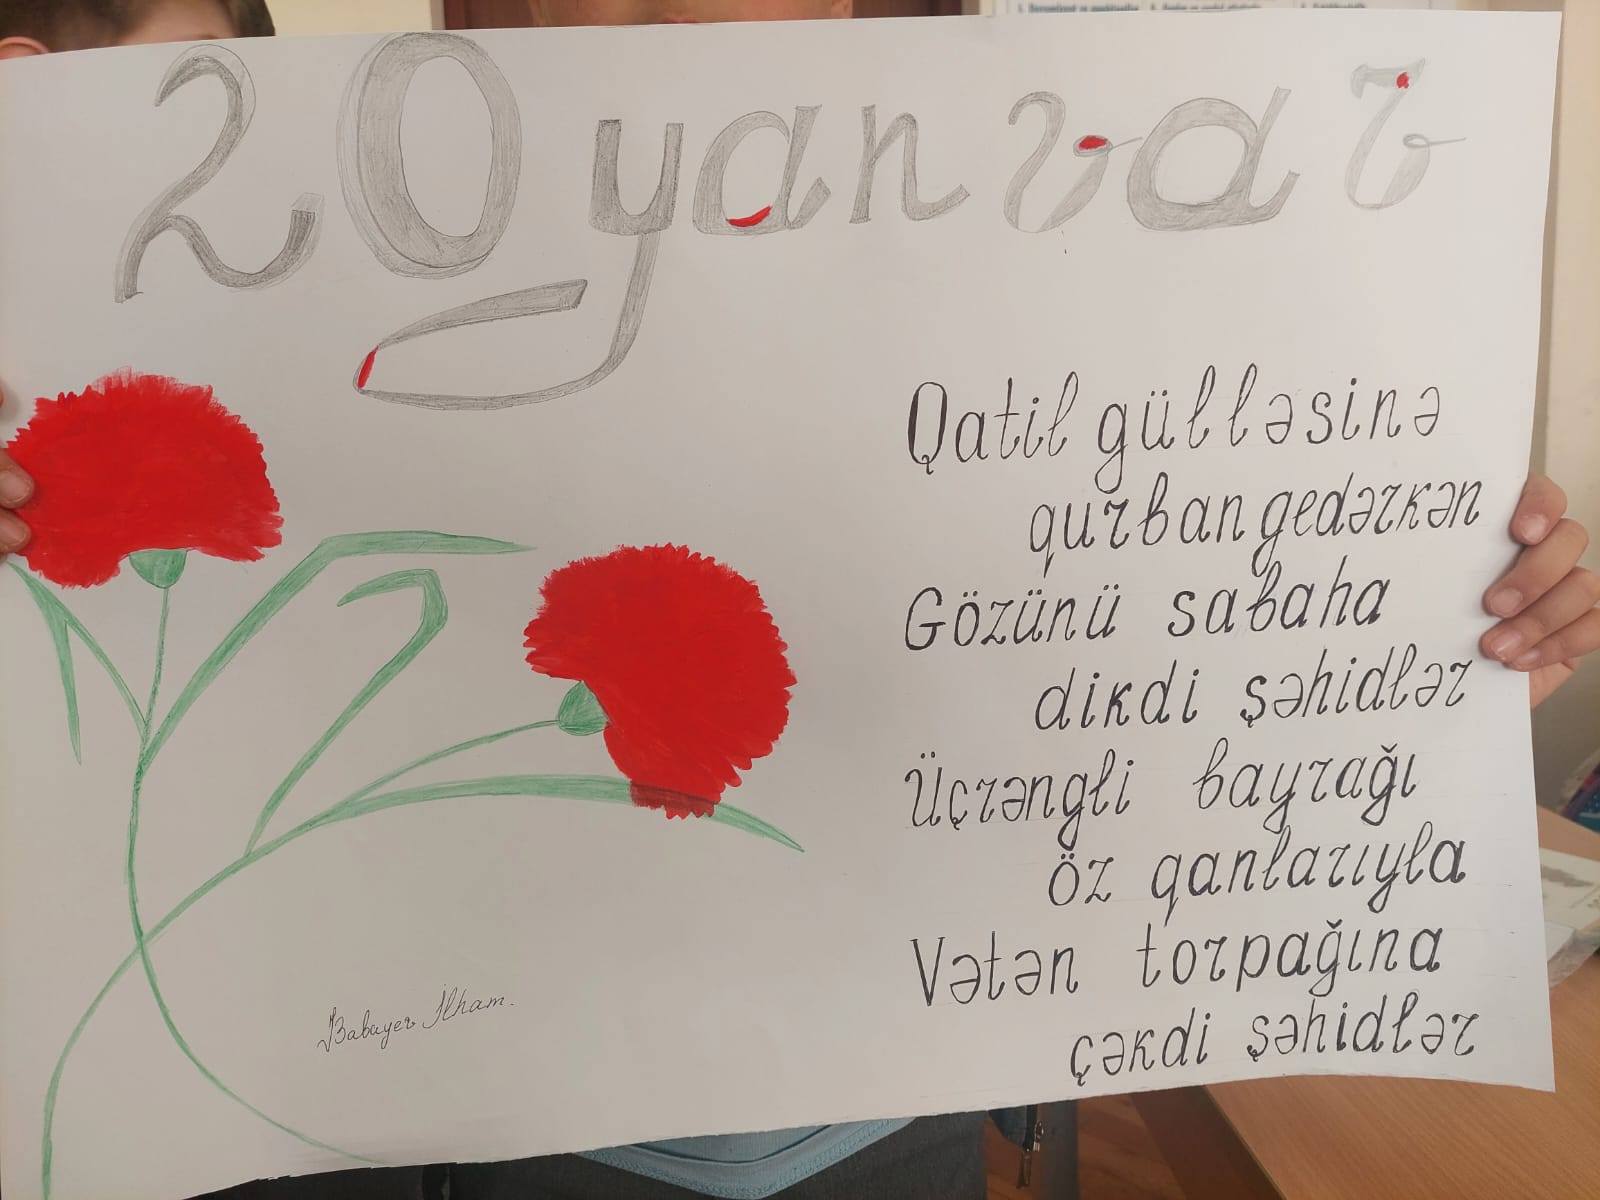 20 yanvar
Qatil gülləsinə
qurban gedərkən
Gözünü sabaha
dikdi şəhidlər
Üçrəngli bayrağı
öz qanlarıyla
Vətən torpağına
çəkdi şəhidlər
Babayev İlham.